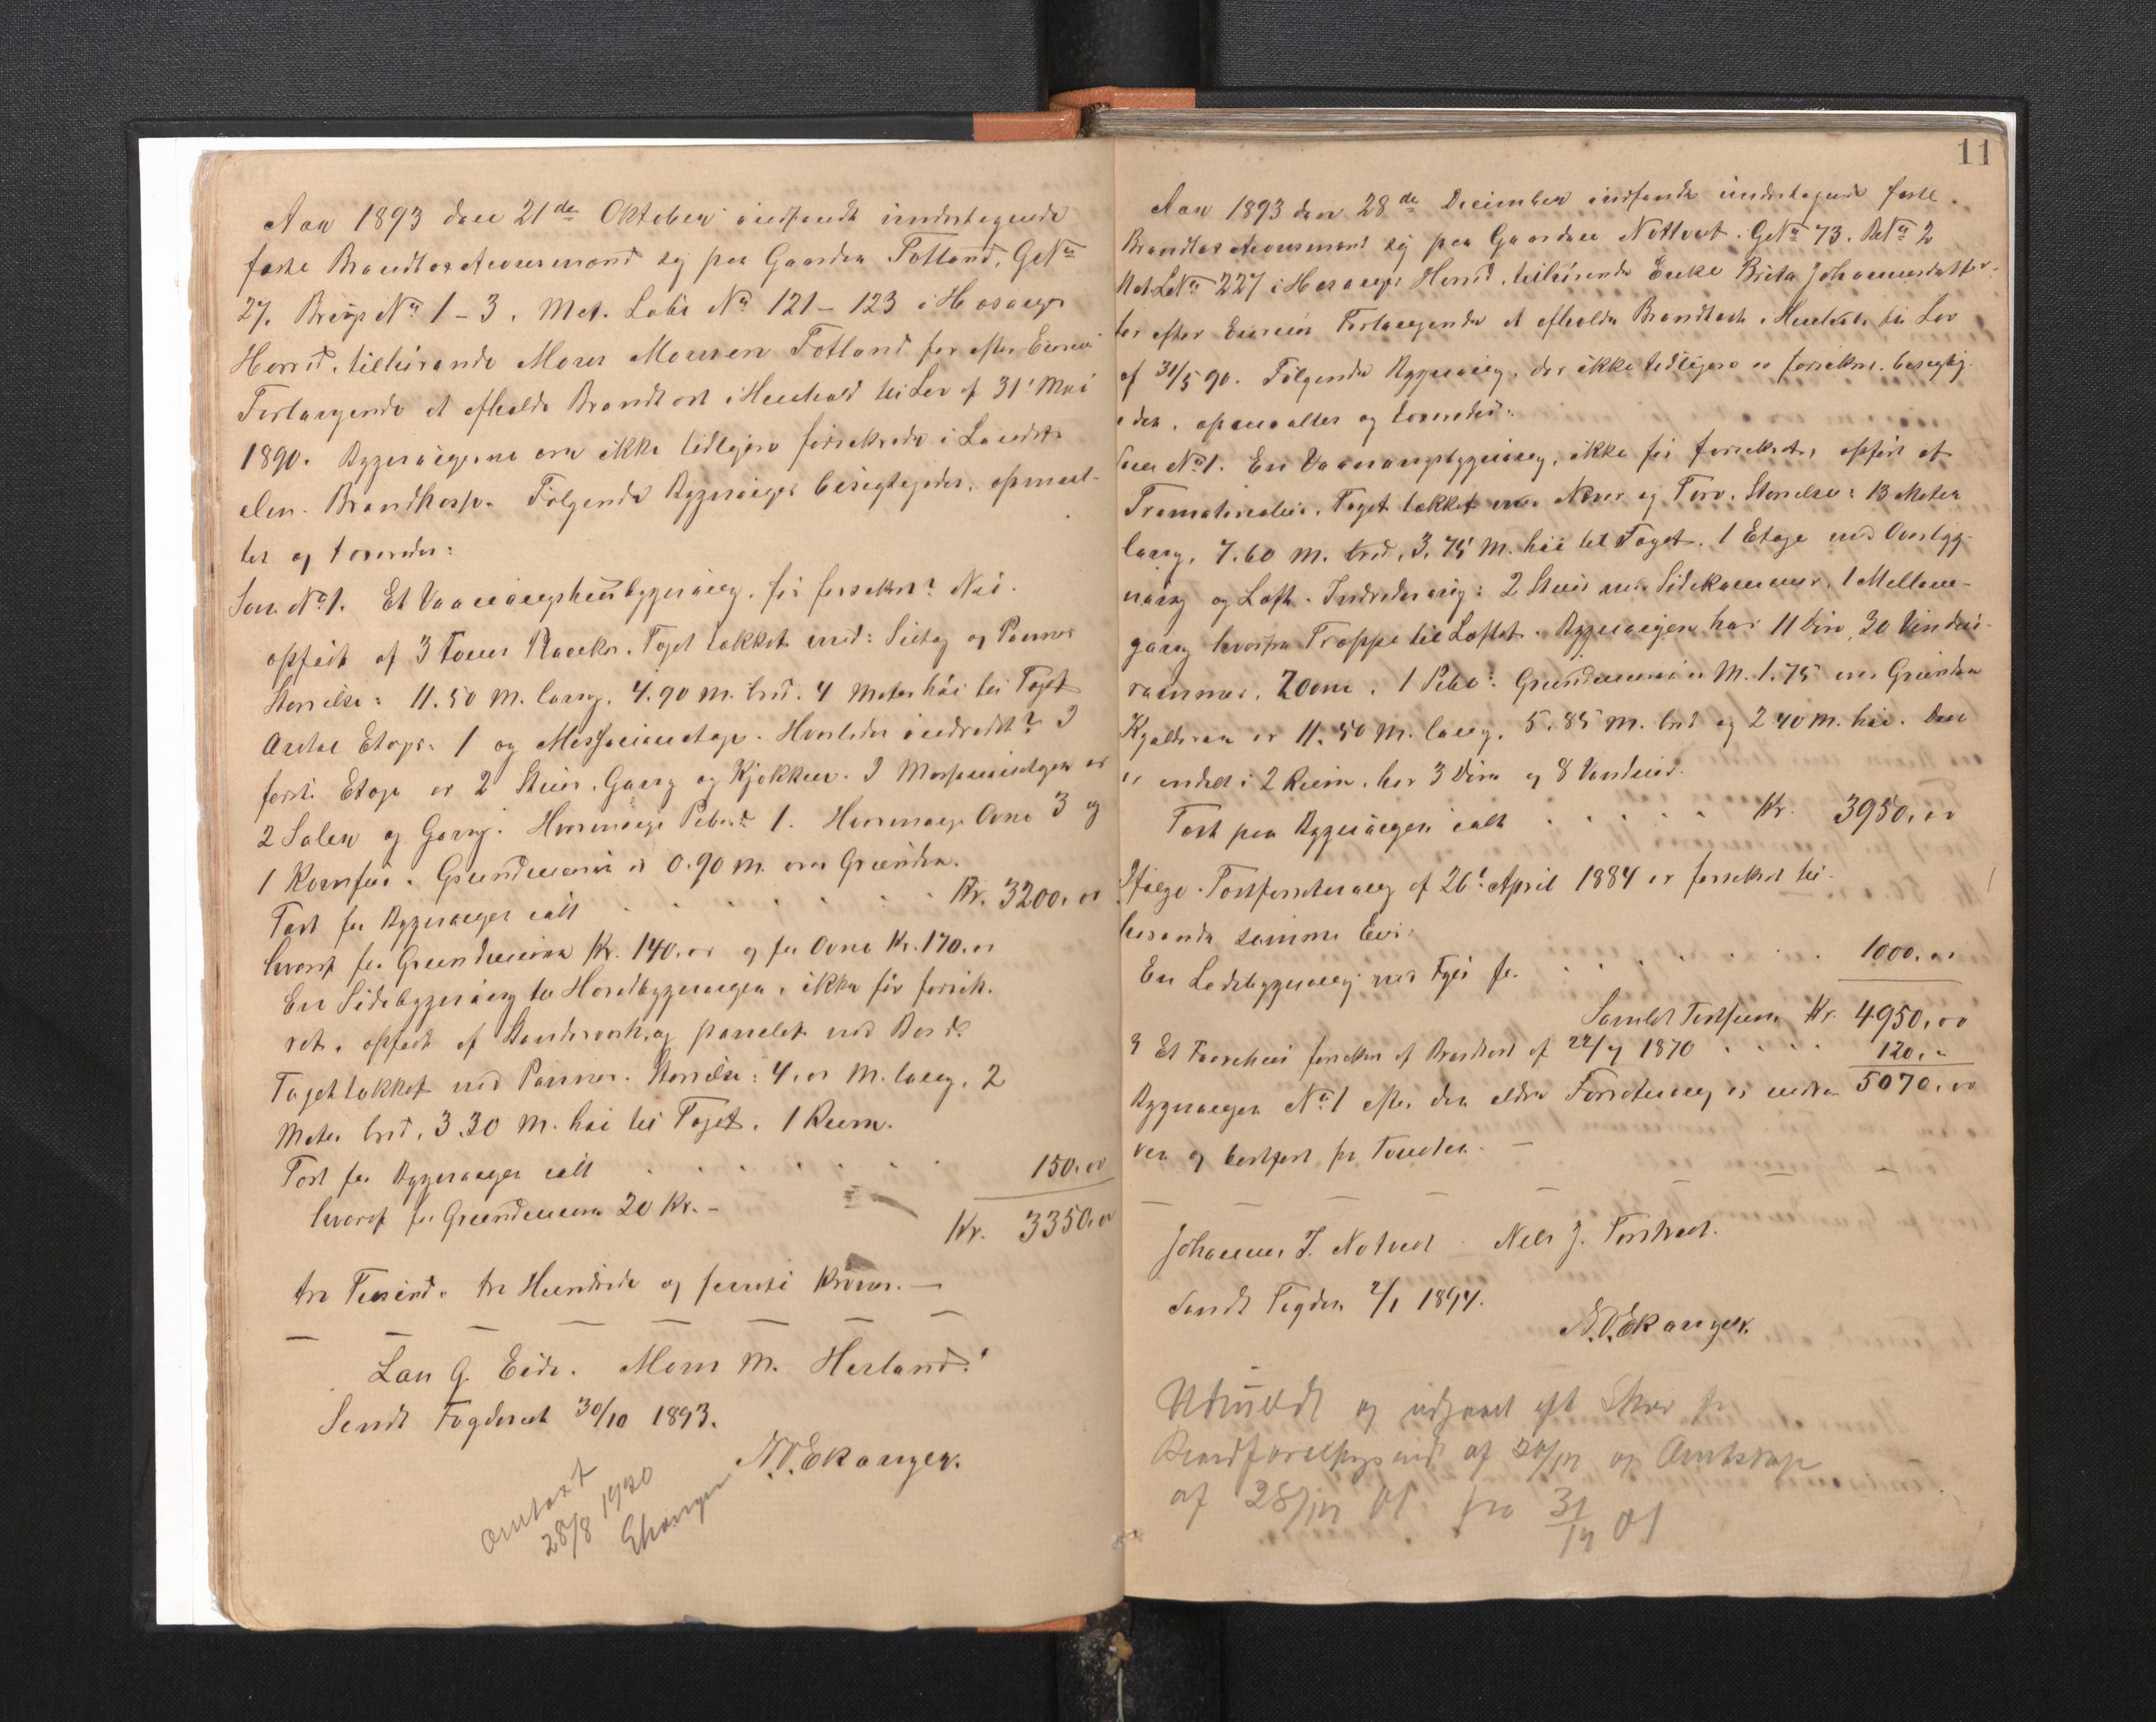 Aar 1893 den 21de Oktober indfandt undertegnede
faste Brandtaxationsmænd sig paa Gaarden Fotland, GNo
27. Brugs No 1-3. Mat. Løbe No 121-123 i Hosanger
Herred, tilhørende Mons Monsen Fotland for efter Eierens
Forlangende at afholde Brandtaxt i Henhold til Lov af 31' Mai
1890. Bygningerne ere ikke tidligere forsikrede i Landets
alm. Brandkasse. Følgende Bygninger besigtigedes, opmaal-
tes og taxeredes:
Lou. No 1. Et Vaaningshusbygning, før forsikret? Nei.
opført af 3 Toms Planker. Taget tækket med: Sutag og Panner
Størrelse: 11.50 M. lang, 4.90 M. bred. 4 Meter høi til Taget
Antal Etager: 1 og Messaninetage. Hvorledes indredet? I
første Etage er 2 Stuer, Gang og Kjøkken. I Messaninetagen er
2 Saler og Gang. Hvormange Piber? 1. Hvormange Ovne 3 og
1 Komfur. Grundmuren er 0.90 M. over Grunden.
Taxt for Bygningen ialt . . . . . . Kr. 3200.00
hvoraf for Grundmuren Kr. 140.00 og for Ovne Kr. 170.00
En Sidebygning til Hovedbygningen, ikke før forsik-
ret, opført af Standerværk og panelet med Bord.
Taget tækket med Panner. Størrelse: 4.00 M. lang, 2
Meter bred, 3.30 M. høi til Taget. 1 Rum.
Taxt for Bygningen ialt . . . . . . 150.00
hvoraf for Grundmuren 20 Kr. - Kr. 3350.00
tre Tusind, tre Hundrede og femti Kroner. -
Lars G. Eide. Mons M. Herland.
Sendt Fogderiet 30/10 1893.
N.O. Ekanger.
omtaxt
28/8 1920
Ekanger
11
Aar 1893 den 28de December indfandt undertegnede faste
Brandtaxationsmænd sig paa Gaarden Nottveit. GNo 73. BNo 2
Mat. LNo 227 i Hosanger Herred, tilhørende Enke Brita Johannesdatter
for efter Eierens Forlangende at afholde Brandtaxt i Henhold til Lov
af 31/5 90. Følgende Bygning, der ikke tidligere er forsikret, besigtig-
edes, opmaaltes og taxeredes:
Lou No 1. En Vaaningsbygning, ikke før forsikret, opført af
Træmaterialer. Taget tækket med Næver og Torv. Størrelse: 13 Meter
lang, 7.60 M. bred, 3.75 M. høi til Taget. 1 Etage med Overbyg-
ning og Loft. Indredning: 2 Stuer med Sidekammer, 1 Mellem-
gang hvorfra Trappe til Loftet. Bygningen har 11 Døre, 30 Vindus-
rammer, 2 Ovne, 1 Pibe. Grundmuren er M. 1.75 over Grunden
Kjælderen er 11.50 M. lang, 5.85 M. bred og 2 40 M. høi. Den
er inddelt i 2 Rum, har 3 Døre og 8 Vinduer.
Taxt paa Bygningen ialt . . . . . Kr. 3950.00
Ifølge Taxtforretning af 26' April 1884 er forsikret til-
hørende samme Eier:
En Ladebygning med Fjøs for . . . . . . 1000.00
Samlet Taxtsum Kr. 4950.00
Et Faarehus forsikret af Brandtaxt af 22/7 1870 . . . . 120.-
Bygningen No 1 efter den ældre Forretning er nedre- 5070.00
ven og bortført fra Tomten. -
Johannes J. Notveit Nels J. Tosteveit.
Sendt Fogden 2/1 1894.
N.O. Ekanger.
og af Amtskap
af 28/12 01 fra 31/12 01